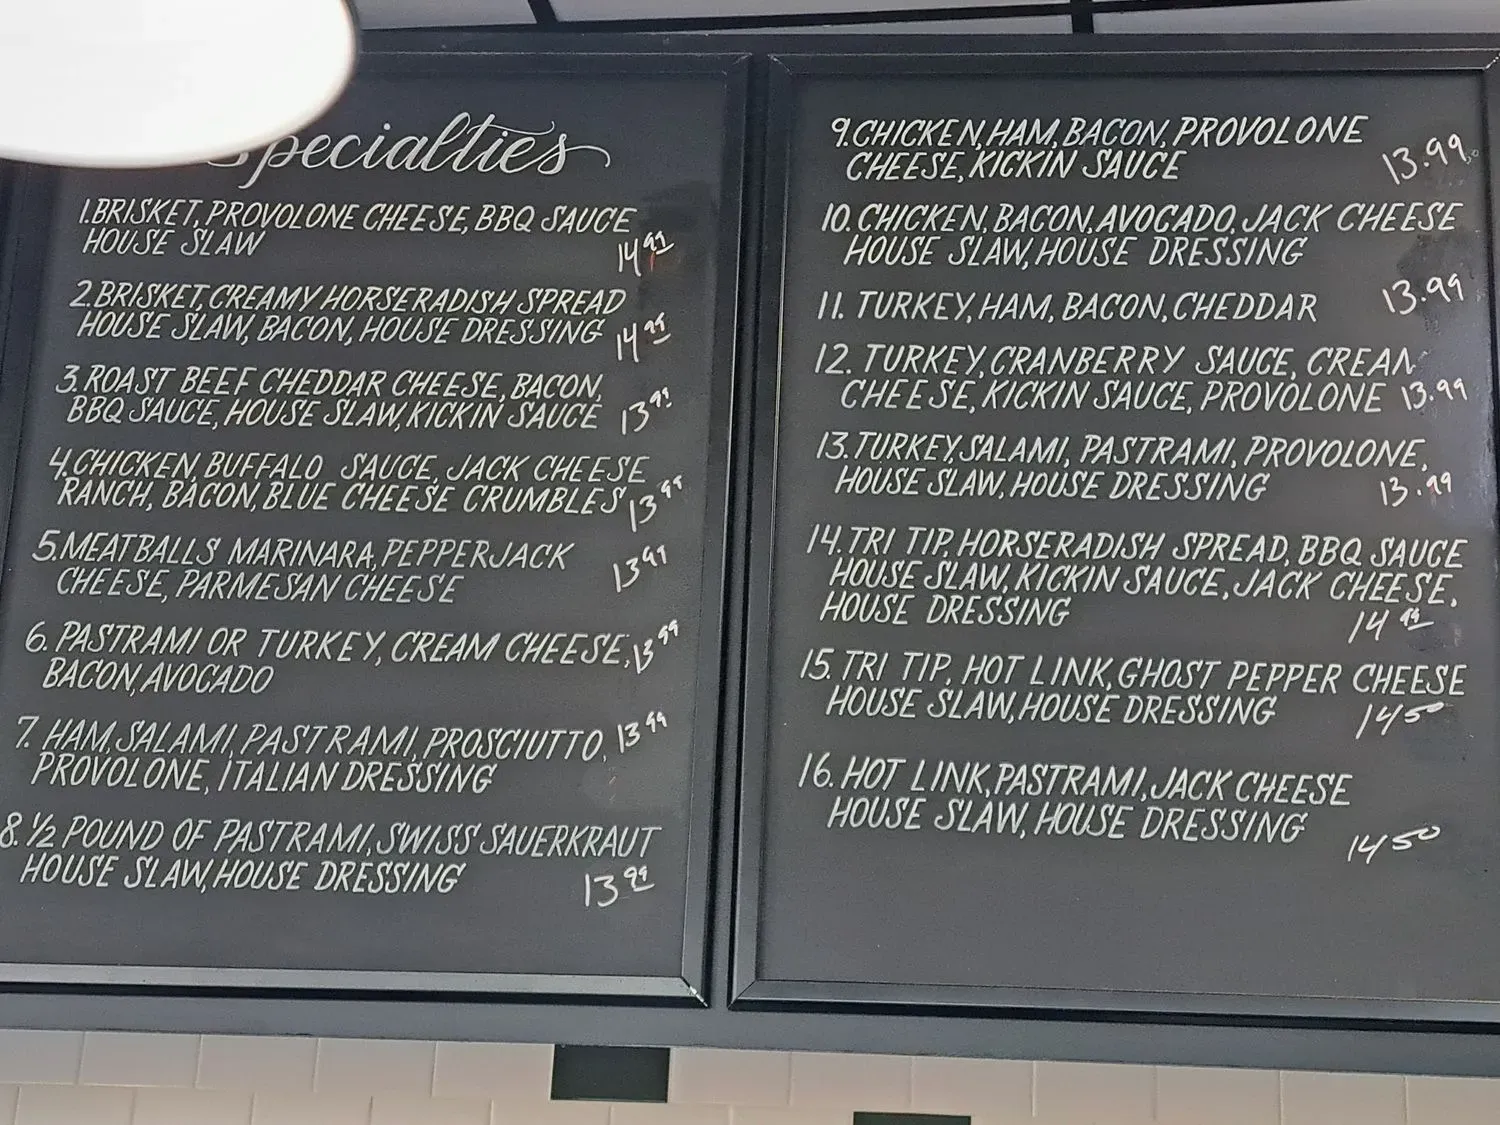 Specialties
1. BRISKET, PROVOLONE CHEESE, BBQ SAUCE
HOUSE SLAW 14 99
2. BRISKET, CREAMY HORSERADISH SPREAD
HOUSE SLAW, BACON, HOUSE DRESSING 14 99
3. ROAST BEEF CHEDDAR CHEESE, BACON,
BBQ SAUCE, HOUSE SLAW, KICKIN SAUCE 13 99
4. CHICKEN, BUFFALO SAUCE, JACK CHEESE
RANCH, BACON, BLUE CHEESE CRUMBLES 13 99
5. MEATBALLS MARINARA, PEPPERJACK
CHEESE, PARMESAN CHEESE 13 99
6. PASTRAMI OR TURKEY, CREAM CHEESE, 13 99
BACON, AVOCADO
7. HAM, SALAMI, PASTRAMI, PROSCIUTTO, 13 99
PROVOLONE, ITALIAN DRESSING
8. 1/2 POUND OF PASTRAMI, SWISS SAUERKRAUT
HOUSE SLAW, HOUSE DRESSING 13 99
9. CHICKEN, HAM, BACON, PROVOLONE
CHEESE, KICKIN SAUCE 13.99
10. CHICKEN, BACON, AVOCADO, JACK CHEESE
HOUSE SLAW, HOUSE DRESSING
13.99
11. TURKEY, HAM, BACON, CHEDDAR
12. TURKEY, CRANBERRY SAUCE, CREAM
CHEESE, KICKIN SAUCE, PROVOLONE 13.99
13. TURKEY, SALAMI, PASTRAMI, PROVOLONE,
HOUSE SLAW, HOUSE DRESSING 13.99
14. TRI TIP, HORSERADISH SPREAD, BBQ SAUCE
HOUSE SLAW, KICKIN SAUCE, JACK CHEESE,
HOUSE DRESSING 14 99
15. TRI TIP, HOT LINK, GHOST PEPPER CHEESE
HOUSE SLAW, HOUSE DRESSING 14 50
16. HOT LINK, PASTRAMI, JACK CHEESE
HOUSE SLAW, HOUSE DRESSING 14 50